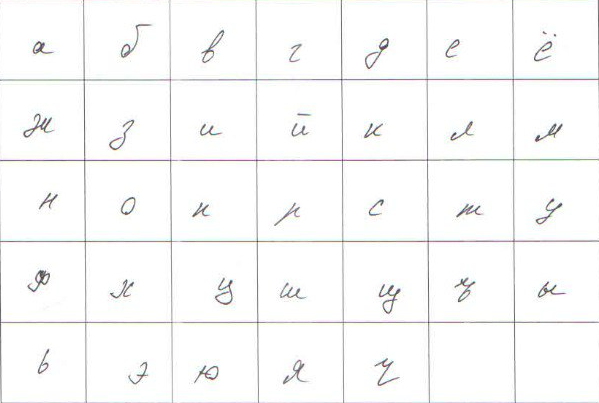 а б в г д е ё
ж з и й к л м
н о п р с т у
ф х ц ш щ ъ ы
ь э ю я ч